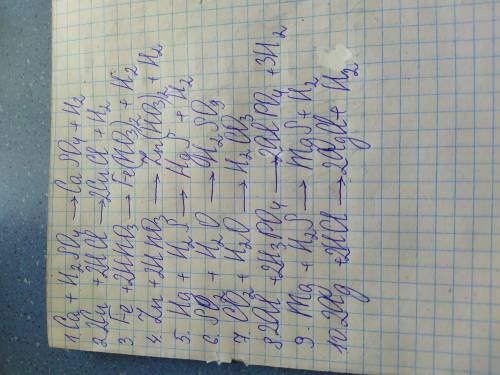 1. Ca + H2SO4 → CaSO4 + H2
2. 2Cu + 2HCl → 2CuCl + H2
3. Fe + 2HNO3 → Fe(NO3)2 + H2
4. Zn + 2HNO3 → Zn(NO3)2 + H2
5. Hg + H2S → HgS + H2
6. SO2 + H2O → H2SO3
7. CO2 + H2O → H2CO3
8. 2Al + 2H3PO4 → 2AlPO4 + 3H2
9. Mg + H2S → MgS + H2
10. 2Ag + 2HCl → 2AgCl + H2